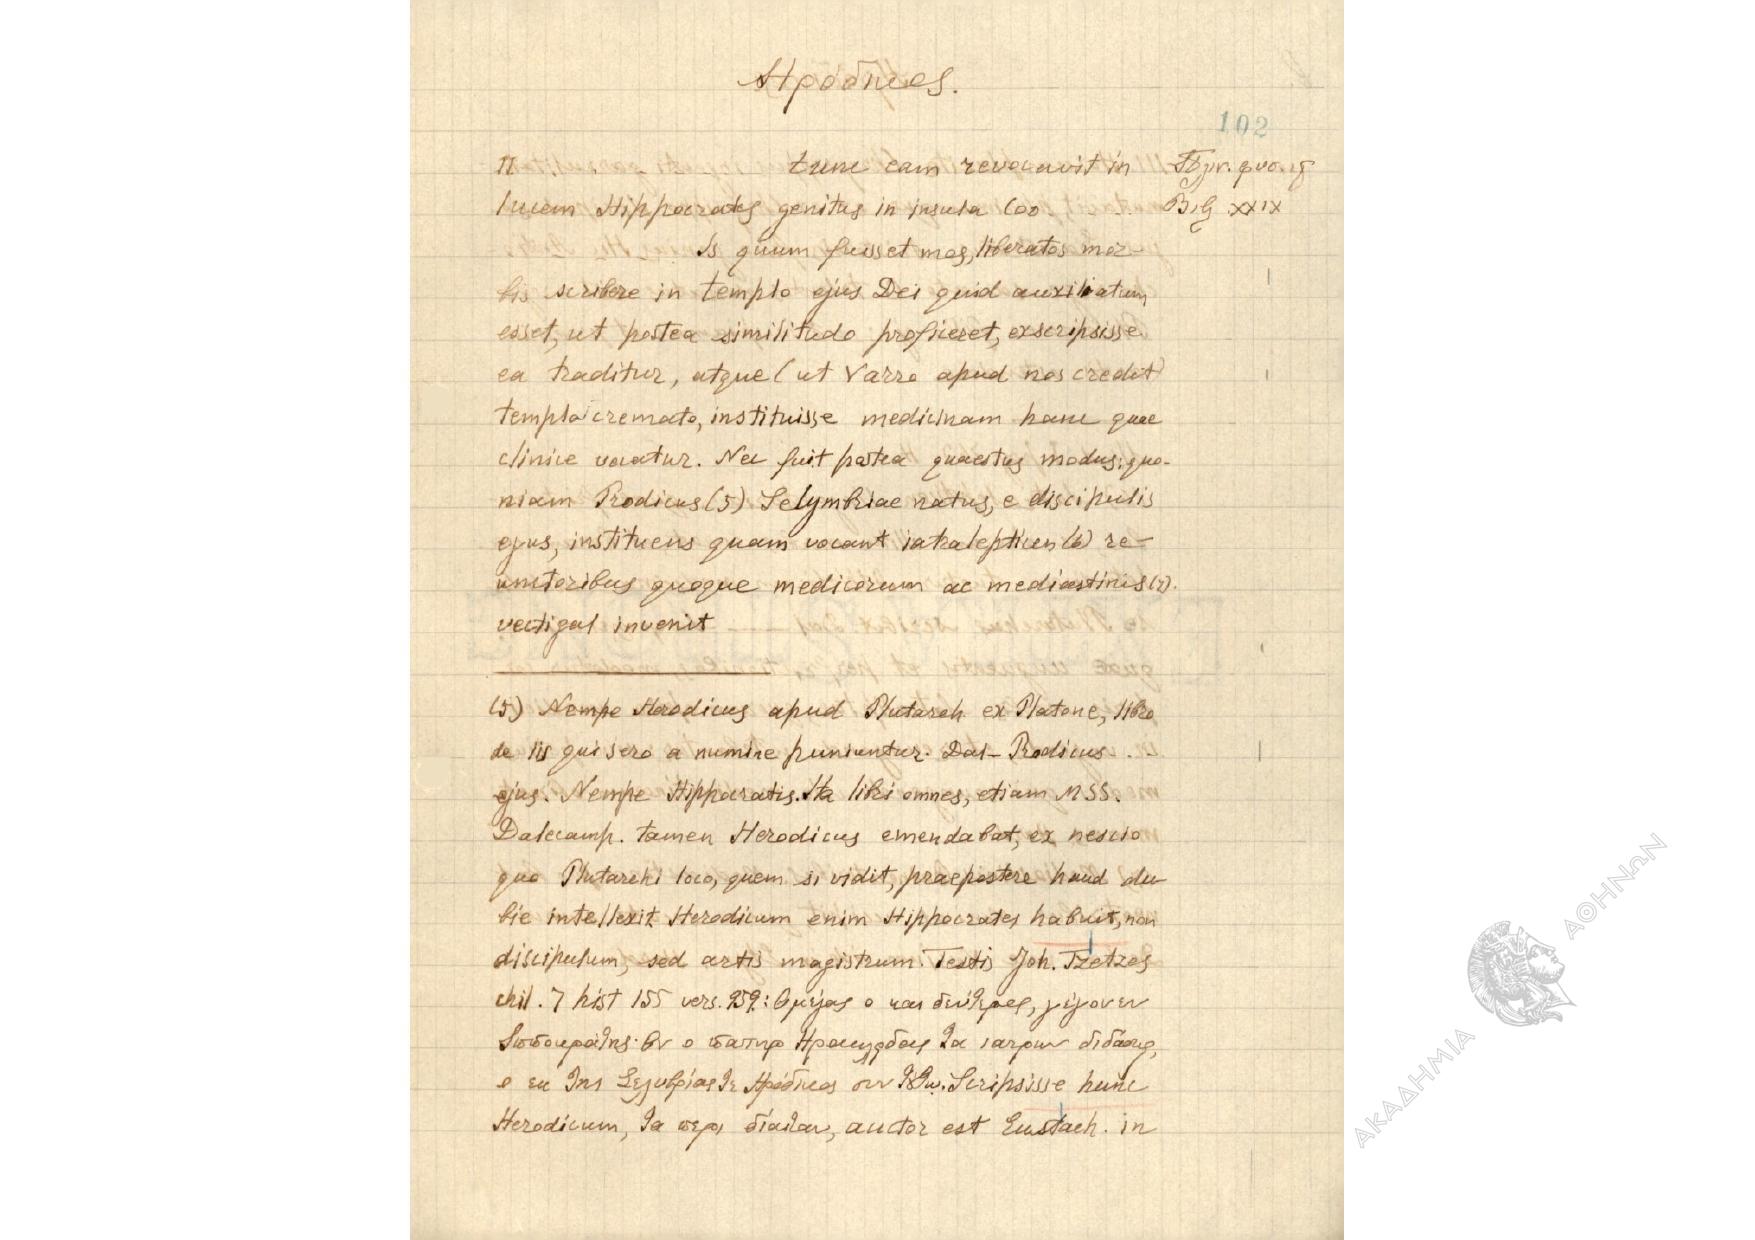 Ηρόδικος.
102
II tunc eam revocavit in Πλιν. φυσ. ιστ
lucem Hippocrates genitus in insula Coo Βιβ. XXIX
Is quum fuisset mos, liberatos mor-
bis scribere in templo ejus Dei quid auxiliatum
esset, ut postea similitudo proficeret, exscripsisse
ea traditur, atque (ut Varro apud nos credit)
templo cremato, instituisse medicinam hanc quae
clinice vocatur. Nec fuit postea quaestus modus, quo-
niam Prodicus (5) Selymbriae natus, e discipulis
ejus, instituens quam vocant iatralepticen (6) re-
unctoribus quoque medicorum ac mediastinis (7).
vectigal invenit
(5) Nempe Herodicus apud Plutarch ex Platone, libro
de iis qui sero a numine puniuntur. Dal— Prodicus .
ejus. Nempe Hippocratis. Ita libri omnes, etiam MSS.
Dalecamp. tamen Herodicus emendabat, ex nescio
quo Plutarchi loco, quem si vidit, praepostere haud du-
bie intellexit Herodicum enim Hippocrates habuit, non
discipulum, sed artis magistrum. Testis Joh. Tzetzes
chil. 7 hist 155 vers. 959: Ομέγας ο και δεύτερος, γέγονεν
Ιπποκράτης· ο πατηρ Ηρακλείδας Τα ιατρων
ο εκ Της Σελυβρίας Τε Ηρόδικος συν Scripsisse hunc
Herodicum, Τα περι δίαιταν, auctor est Eustach. in
ΑΚΑΔΗΜΙΑ ΑΘΗΝΩΝ